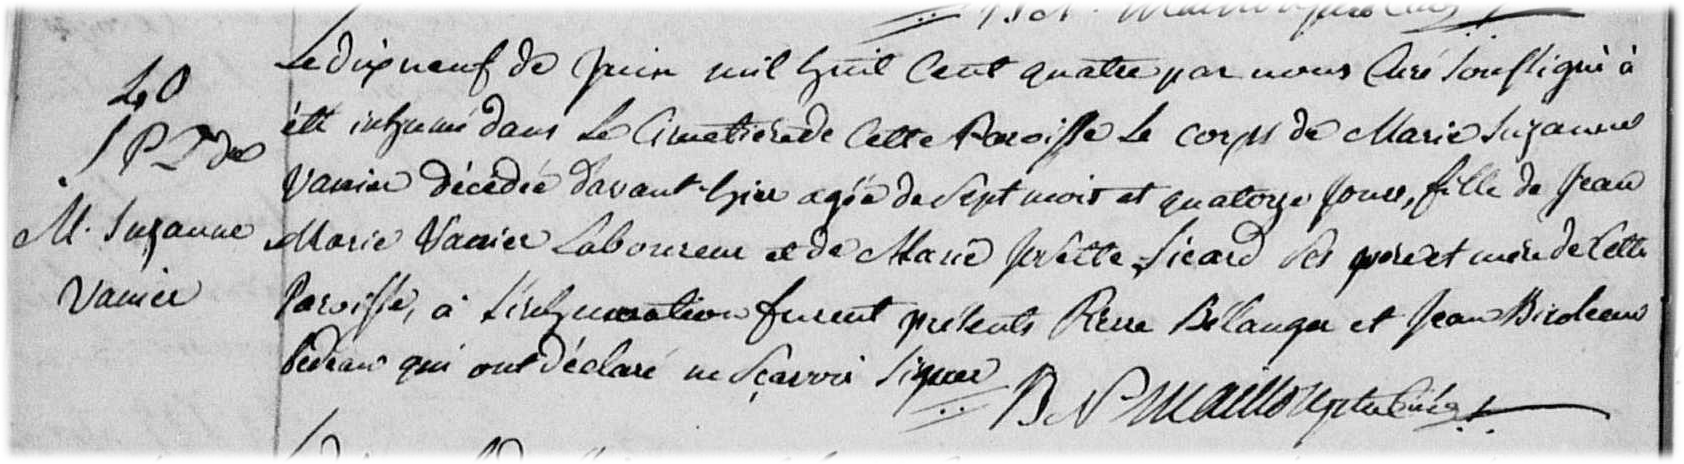 40
S P T de
M. Suzanne
Vanier
Le dix neuf de Juin mil huit Cent quatre par nous Curé Soussigné à
été inhumé dans Le Cimetiere de Cette Paroisse Le corps de Marie Suzanne
Vanier décédée davant-hier agée de Sept mois et quatorze Jours, fille de Jean
Marie Vanier Laboureur et de Marie Josette Sicard Ses pere et mere de Cette
Paroisse, à L'inhumation furent présents Pierre Bélanger et Jean
bedeau qui ont déclaré ne Sçavoir Signer
B N Mailloux ptre Curé